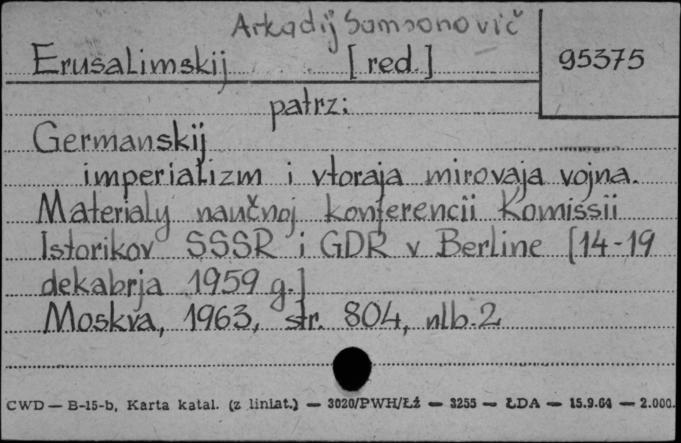 Arkadij Samsonovič
Erusalimskij [red.] 95375
patrz:
Germanskij
imperializm i vtoraja mirovaja vojna.
Materialy naučnoj konferencii Komissii
Istorikov SSSR i GDR v Berline [14-19
dekabrja 1959 g.]
Moskva, 1963, str. 804, nlb. 2
CWD — B-15-b, Karta katal. (z liniat.) — 3020/PWH/Łź — 3255 — ŁDA — 15.9.64 — 2.000.